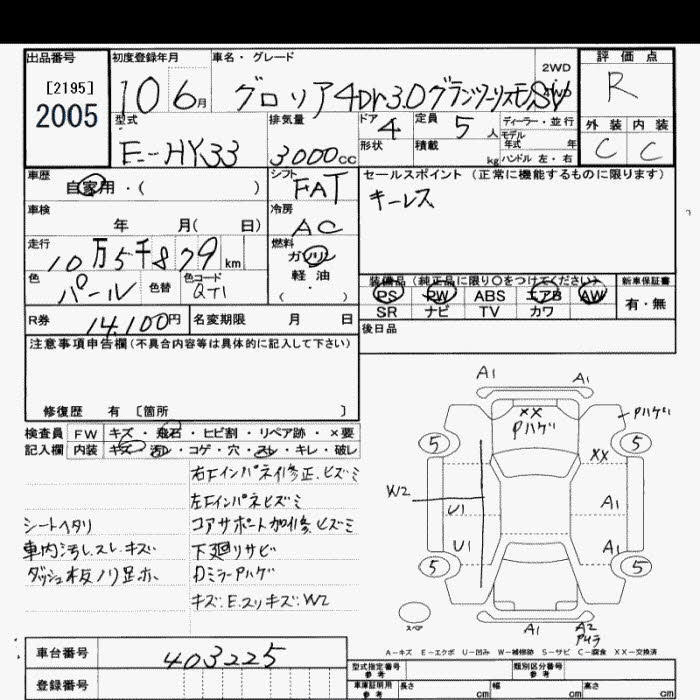 出品番号 初度登録年月 車名・グレード 2WD 4WD 評価点
[2195]
2005
10 6月 グロリア4Dr3.0グランツーリスモSV R
型式 排気量 ドア 4 定員 5 人 ディーラー・並行 外装 内装
モデル年式 年
E-HY33 3000cc 形状 積載 kg ハンドル 左・右 C C
車歴 自家用・( ) シフト FAT セールスポイント(正常に機能するものに限ります)
キーレス
車検 年 月( 日) 冷房 AC
走行 10万5千879km 燃料 ガソリン 軽油 ( ・ )
色 パール 色替 色コード QT1
装備品(純正品に限り○をつけてください) 新車保証書
PS PW ABS エアB AW 有・無
SR ナビ TV カワ
R券 14,100円 名変期限 月 日 後日品
注意事項申告欄(不具合内容等は具体的に記入して下さい)
修復歴 有 〔箇所 〕
検査員 FW キズ・飛石・ヒビ割・リペア跡・×要
記入欄 内装 キズ・汚レ・コゲ・穴・スレ・キレ・破レ
右Fインパネイ修正.ヒズミ
左Fインパネヒズミ
シートヘタリ コアサポート加修、ヒズミ
車内汚レ.スレ.キズ 下廻リサビ
ダッシュ板ノリ足ホ Dミラーアハゲ
キズ:E.スリキズ:W2
A1 A1
XX Pハゲ Pハゲ
5 5
XX
W2 U1 A1
U1 A1
5 5
スペア A1 A2
A-キズ E-エクボ U-凹み W-補修跡 S-サビ C-腐食 XX-交換済
車台番号 403225
登録番号
型式指定番号 参考 類別区分番号 参考
車庫証明用 参考 長さ cm 幅 cm 高さ cm